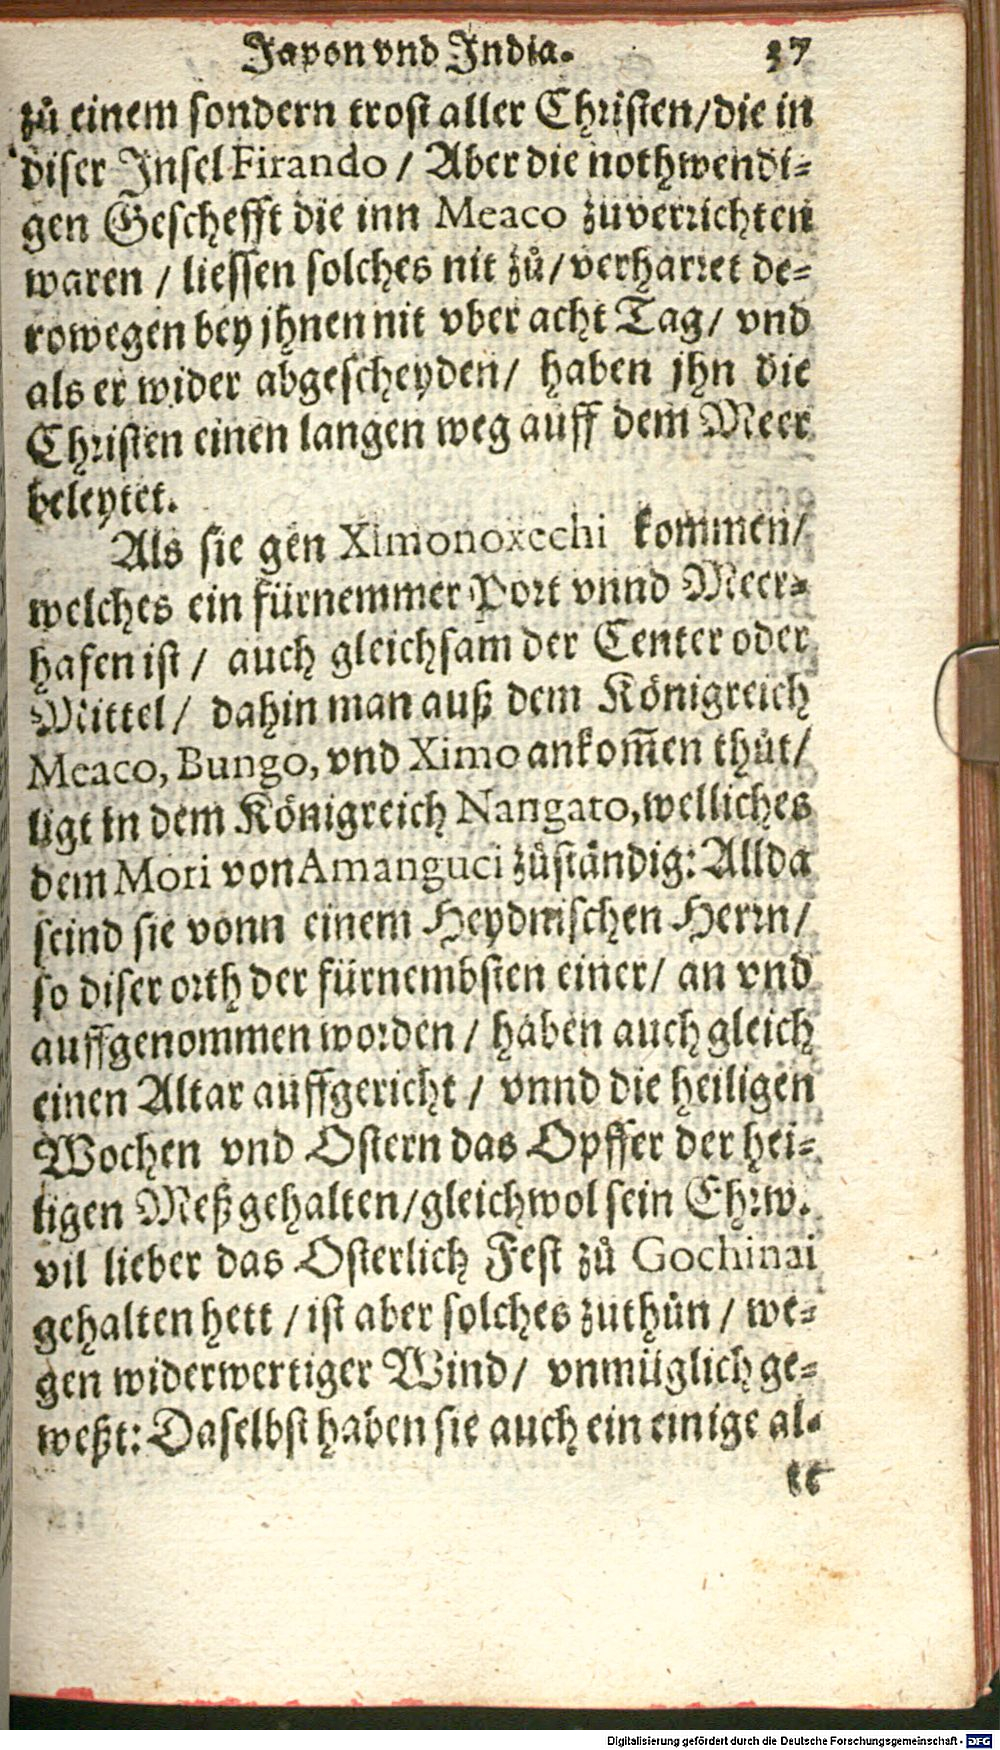 Japon vnd India. 37
zů einem sondern trost aller Christen/die in
diser Insel Firando / Aber die nothwendi-
gen Geschefft die inn Meaco zuverrichten
waren / liessen solches nit zů/verharret de-
rowegen bey jhnen nit vber acht Tag/ vnd
als er wider abgescheyden/ haben jhn die
Christen einen langen weg auff dem Meer
beleytet.
Als sie gen Ximonoxechi kommen/
welches ein fürnemmer Port vnnd Meer-
hafen ist / auch gleichsam der Center oder
Mittel/ dahin man auß dem Königreich
Meaco, Bungo, vnd Ximo ankom̃en thůt/
ligt in dem Königreich Nangato, welliches
dem Mori von Amanguci zůständig: Allda
seind sie vonn einem Heydnischen Herrn/
so diser orth der fürnembsten einer/ an vnd
auffgenommen worden / haben auch gleich
einen Altar auffgericht / vnnd die heiligen
Wochen vnd Ostern das Opffer der hei-
ligen Meß gehalten/gleichwol sein Ehrw.
vil lieber das Osterlich Fest zů Gochinai
gehalten hett / ist aber solches zuthůn / we-
gen widerwertiger Wind/ vnmüglich ge-
weßt: Daselbst haben sie auch ein einige al-
te
Digitalisierung gefördert durch die Deutsche Forschungsgemeinschaft - DFG